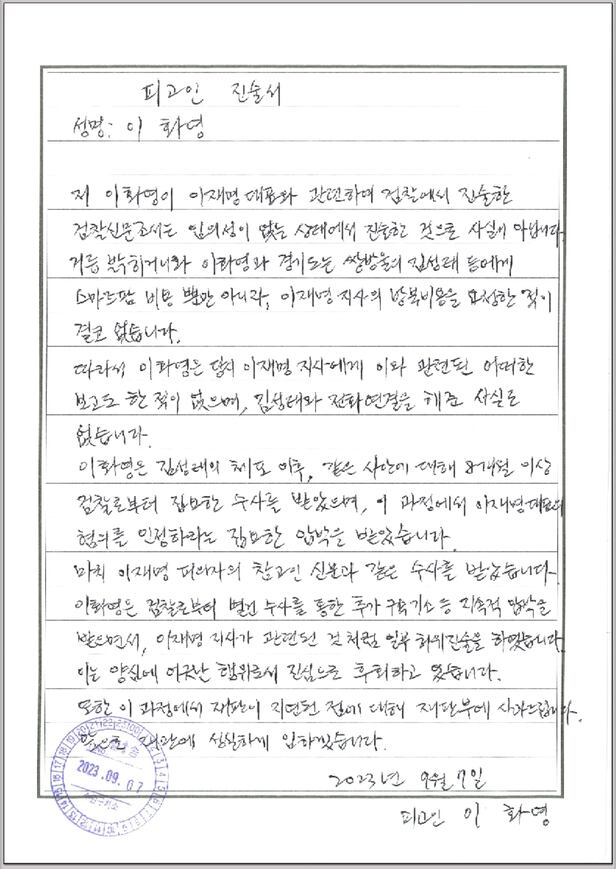 피고인 진술서
성명: 이 화영
저 이화영이 이재명 대표와 관련하여 검찰에서 진술한
검찰신문조서는 임의성이 없는 상태에서 진술한 것으로 사실이 아닙니다.
거듭 밝히거니와 이화영과 경기도는 쌍방울의 김성태 등에게
스마트팜 비용 뿐만 아니라, 이재명 지사의 방북비용을 요청한 적이
결코 없습니다.
따라서 이화영은 당시 이재명 지사에게 이와 관련된 어떠한
보고도 한 적이 없으며, 김성태와 전화연결을 해준 사실도
없습니다.
이화영은 김성태의 체포 이후, 같은 사안에 대해 8개월 이상
검찰로부터 집요한 수사를 받았으며, 이 과정에서 이재명대표의
혐의를 인정하라는 집요한 압박을 받았습니다.
마치 이재명 피의자의 참고인 신분과 같은 수사를 받았습니다.
이화영은 검찰로부터 별건 수사를 통한 추가 구속기소 등 지속적 압박을
받으면서, 이재명 지사가 관련된 것처럼 일부 허위진술을 하였습니다.
이는 양심에 어긋난 행위로서 진심으로 후회하고 있습니다.
또한 이 과정에서 재판이 지연된 점에 대해 재판부에 사과드립니다.
앞으로 재판에 성실하게 임하겠습니다.
2023.09.07
2023년 9월 7일
피고인 이 화영